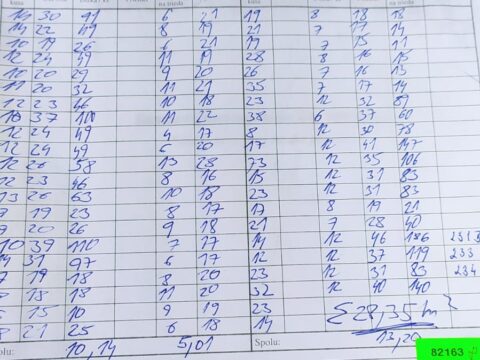 kusa na strieda na strieda
14 30 91 6 21 19 8 18 18
14 22 49 8 19 21 7 17 14
10 19 26 6 21 19 7 15 11
12 24 49 11 19 28 8 16 15
10 20 29 9 20 26 7 16 13
11 20 32 11 21 35 7 17 14
12 23 46 10 18 23 12 32 89
10 37 11 22 38 6 37 60
12 24 49 4 17 8 12 30 78
12 24 49 6 20 17 12 41 147
12 26 58 13 28 73 12 35 106
12 23 46 8 16 15 12 31 83
13 26 63 10 18 23 12 31 83
7 19 23 8 17 17 8 19 21
9 20 26 9 18 21 7 28 40
10 39 110 7 17 14 12 46 186
14 31 97 6 17 12 12 37 119 233
7 19 18 8 20 23 12 31 83 234
8 18 18 11 20 32 12 40 140
6 15 10 9 19 23 Σ 28,35
8 21 25 6 18 14
10,14 5,01 Spolu: 13,20
82163